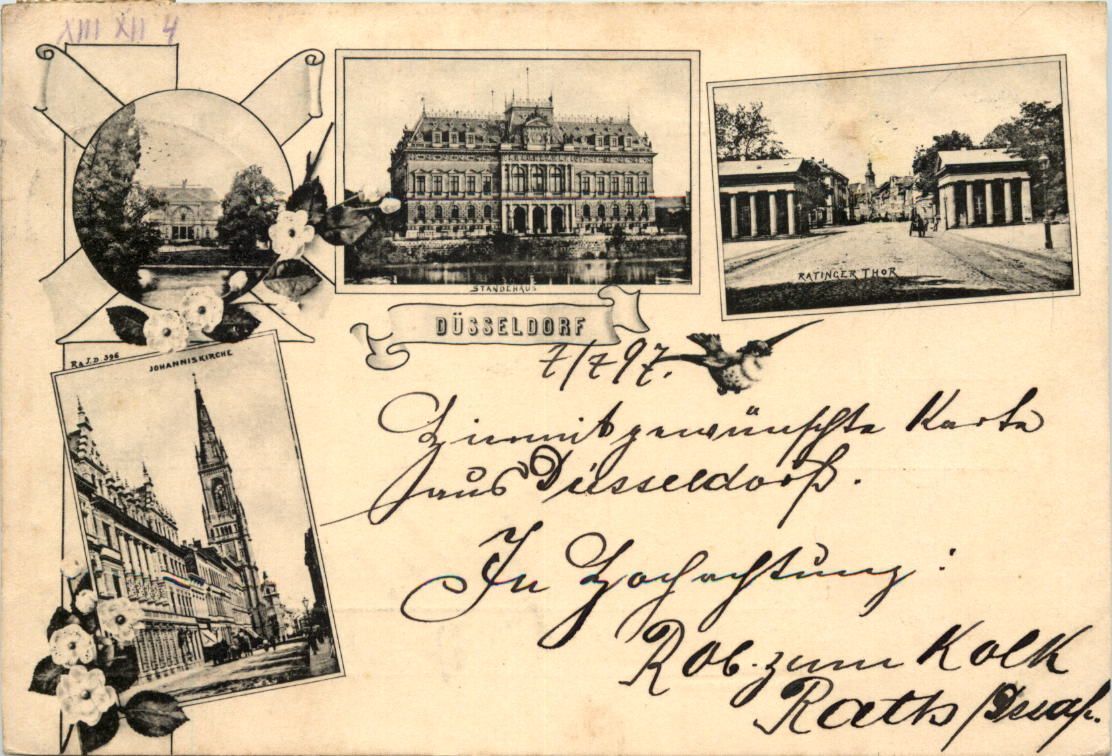 XIII XII 4
STÄNDEHAUS
RATINGER THOR
DÜSSELDORF
R & J. D. 396
JOHANNISKIRCHE
7/7 97.
Hiermit gewünschte Karte
aus Düsseldorf.
In Hochachtung:
Rob. zum Kolk
Rath /Dssdf.